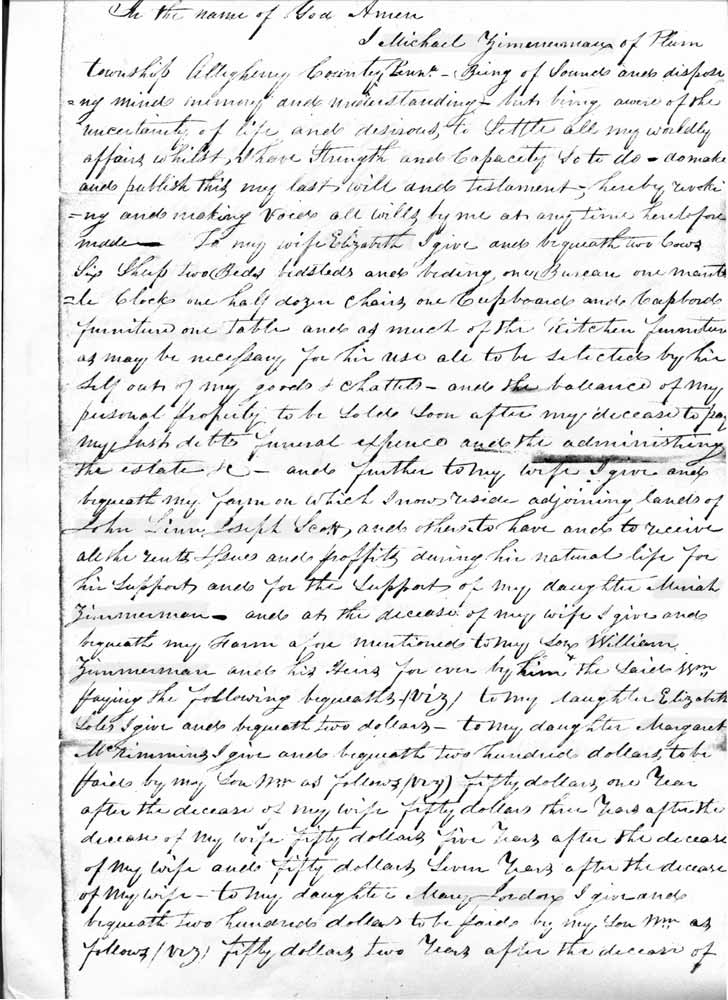 In the name of God Amen
I Michael Zimmerman of Plum
township Allegheny County Penna - Being of Sound and dispose
=ng mind memory and understanding - but being aware of the
uncertainty of life and desirous to Settle all my worldly
affairs whilst I have Strength and Capacety So to do - do make
and publish this my last will and testament - hereby revoki
=ng and making Void all wills by me at any time heretofore
made - To my wife Elizabeth I give and bequeath two Cows
Six Sheep two Beds bedsteds and beding one Bureau one mant
=le Clock one half dozen Chairs one Cupboard and Capbord
furniture one table and as much of the Kitchen furniture
as may be necessary for hir use all to be selected by hir
self out of my goods & Chattels - and the ballance of my
personal property to be Sold Soon after my decease to pay
my Just debts funeral expences and the administing
the estate &c - and further to my wife I give and
bequeath my farm on which I now reside adjoining lands of
John Linn Joseph Scott, and others to have and to receive
all the rents Issues and proffits during hir natural life for
hir Support and for the Support of my daughter Muriah
Zimmerman - and at the decease of my wife I give and
bequeath my Farm afore mentioned to my Son William
Zimmerman and his Heirs for ever by him the Said Wm
Paying the following bequeaths (Viz) to my daughter Elizabeth
I give and bequeath two dollars - to my daughter Margaret
McKimmins I give and bequeath two hundred dollars, to be
Paid by my Son Wm as follows (Viz) fifty dollars one Year
after the decease of my wife fifty dollars three Years after the
decease of my wife fifty dollars five Years after the decease
of my wife and fifty dollars Seven Years after the decease
of my wife - to my daughter Mary Gordon I give and
bequeath two hundred dollars to be paid by my Son Wm as
follows (Viz) fifty dollars two Years after the decease of